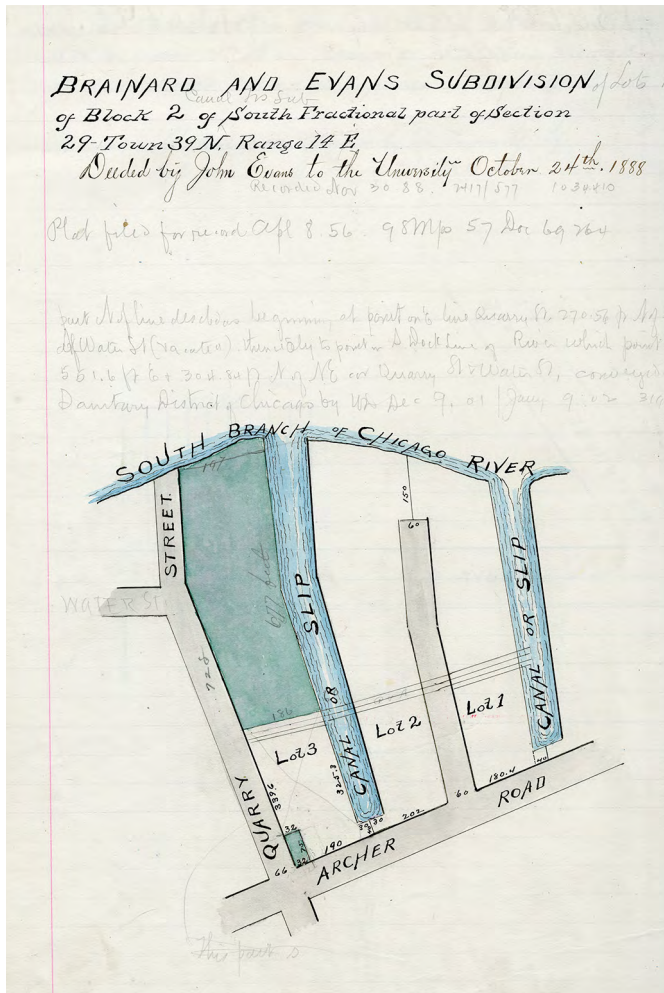 BRAINARD AND EVANS SUBDIVISION of Lots
Canal Trs Sub
of Block 2 of South Fractional part of Section
29-Town 39 N. Range 14 E.
Deeded by John Evans to the University October 24th. 1888
Recorded Nov 30 88. 2417/577 1034410
Plat filed for record Apl 8. 56. 98 Mps 57 Doc 69264
part N of line described beginning at point on E line Quarry St. 270.56 ft N of
of Water St (vacated) thence to point in S Dock Line of River which point
551.6 ft E & 304.84 ft N of NE cor Quarry St & Water St, conveyed
Sanitary District of Chicago by WD Dec 9. 01 / Jany 9. 02
SOUTH BRANCH OF CHICAGO RIVER
STREET.
150
60
WATER ST.
SLIP
SLIP
OR
OR
CANAL
CANAL
728
186
Lot 3
Lot 2
Lot 1
325.8
QUARRY
32
32
66
190
30
202
60
180.4
40
ARCHER
ROAD
This part is